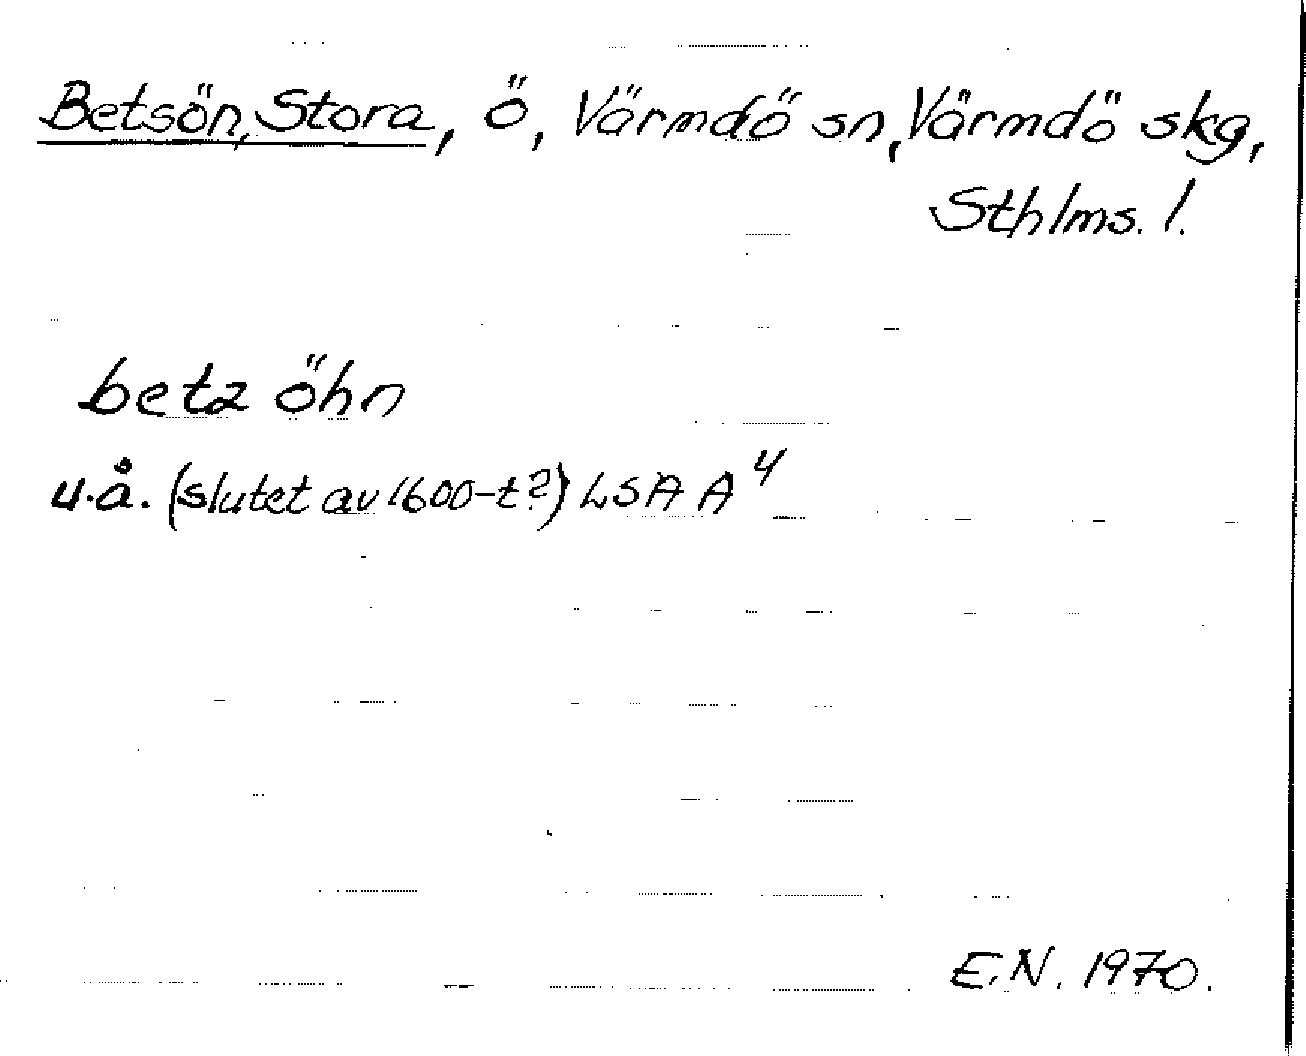 Betsön, Stora, ö, Värmdö sn, Värmdö skg,
Sthlms. l.
betz öhn
u.å. (slutet av 1600-t?) LSA A⁴
E.N. 1970.